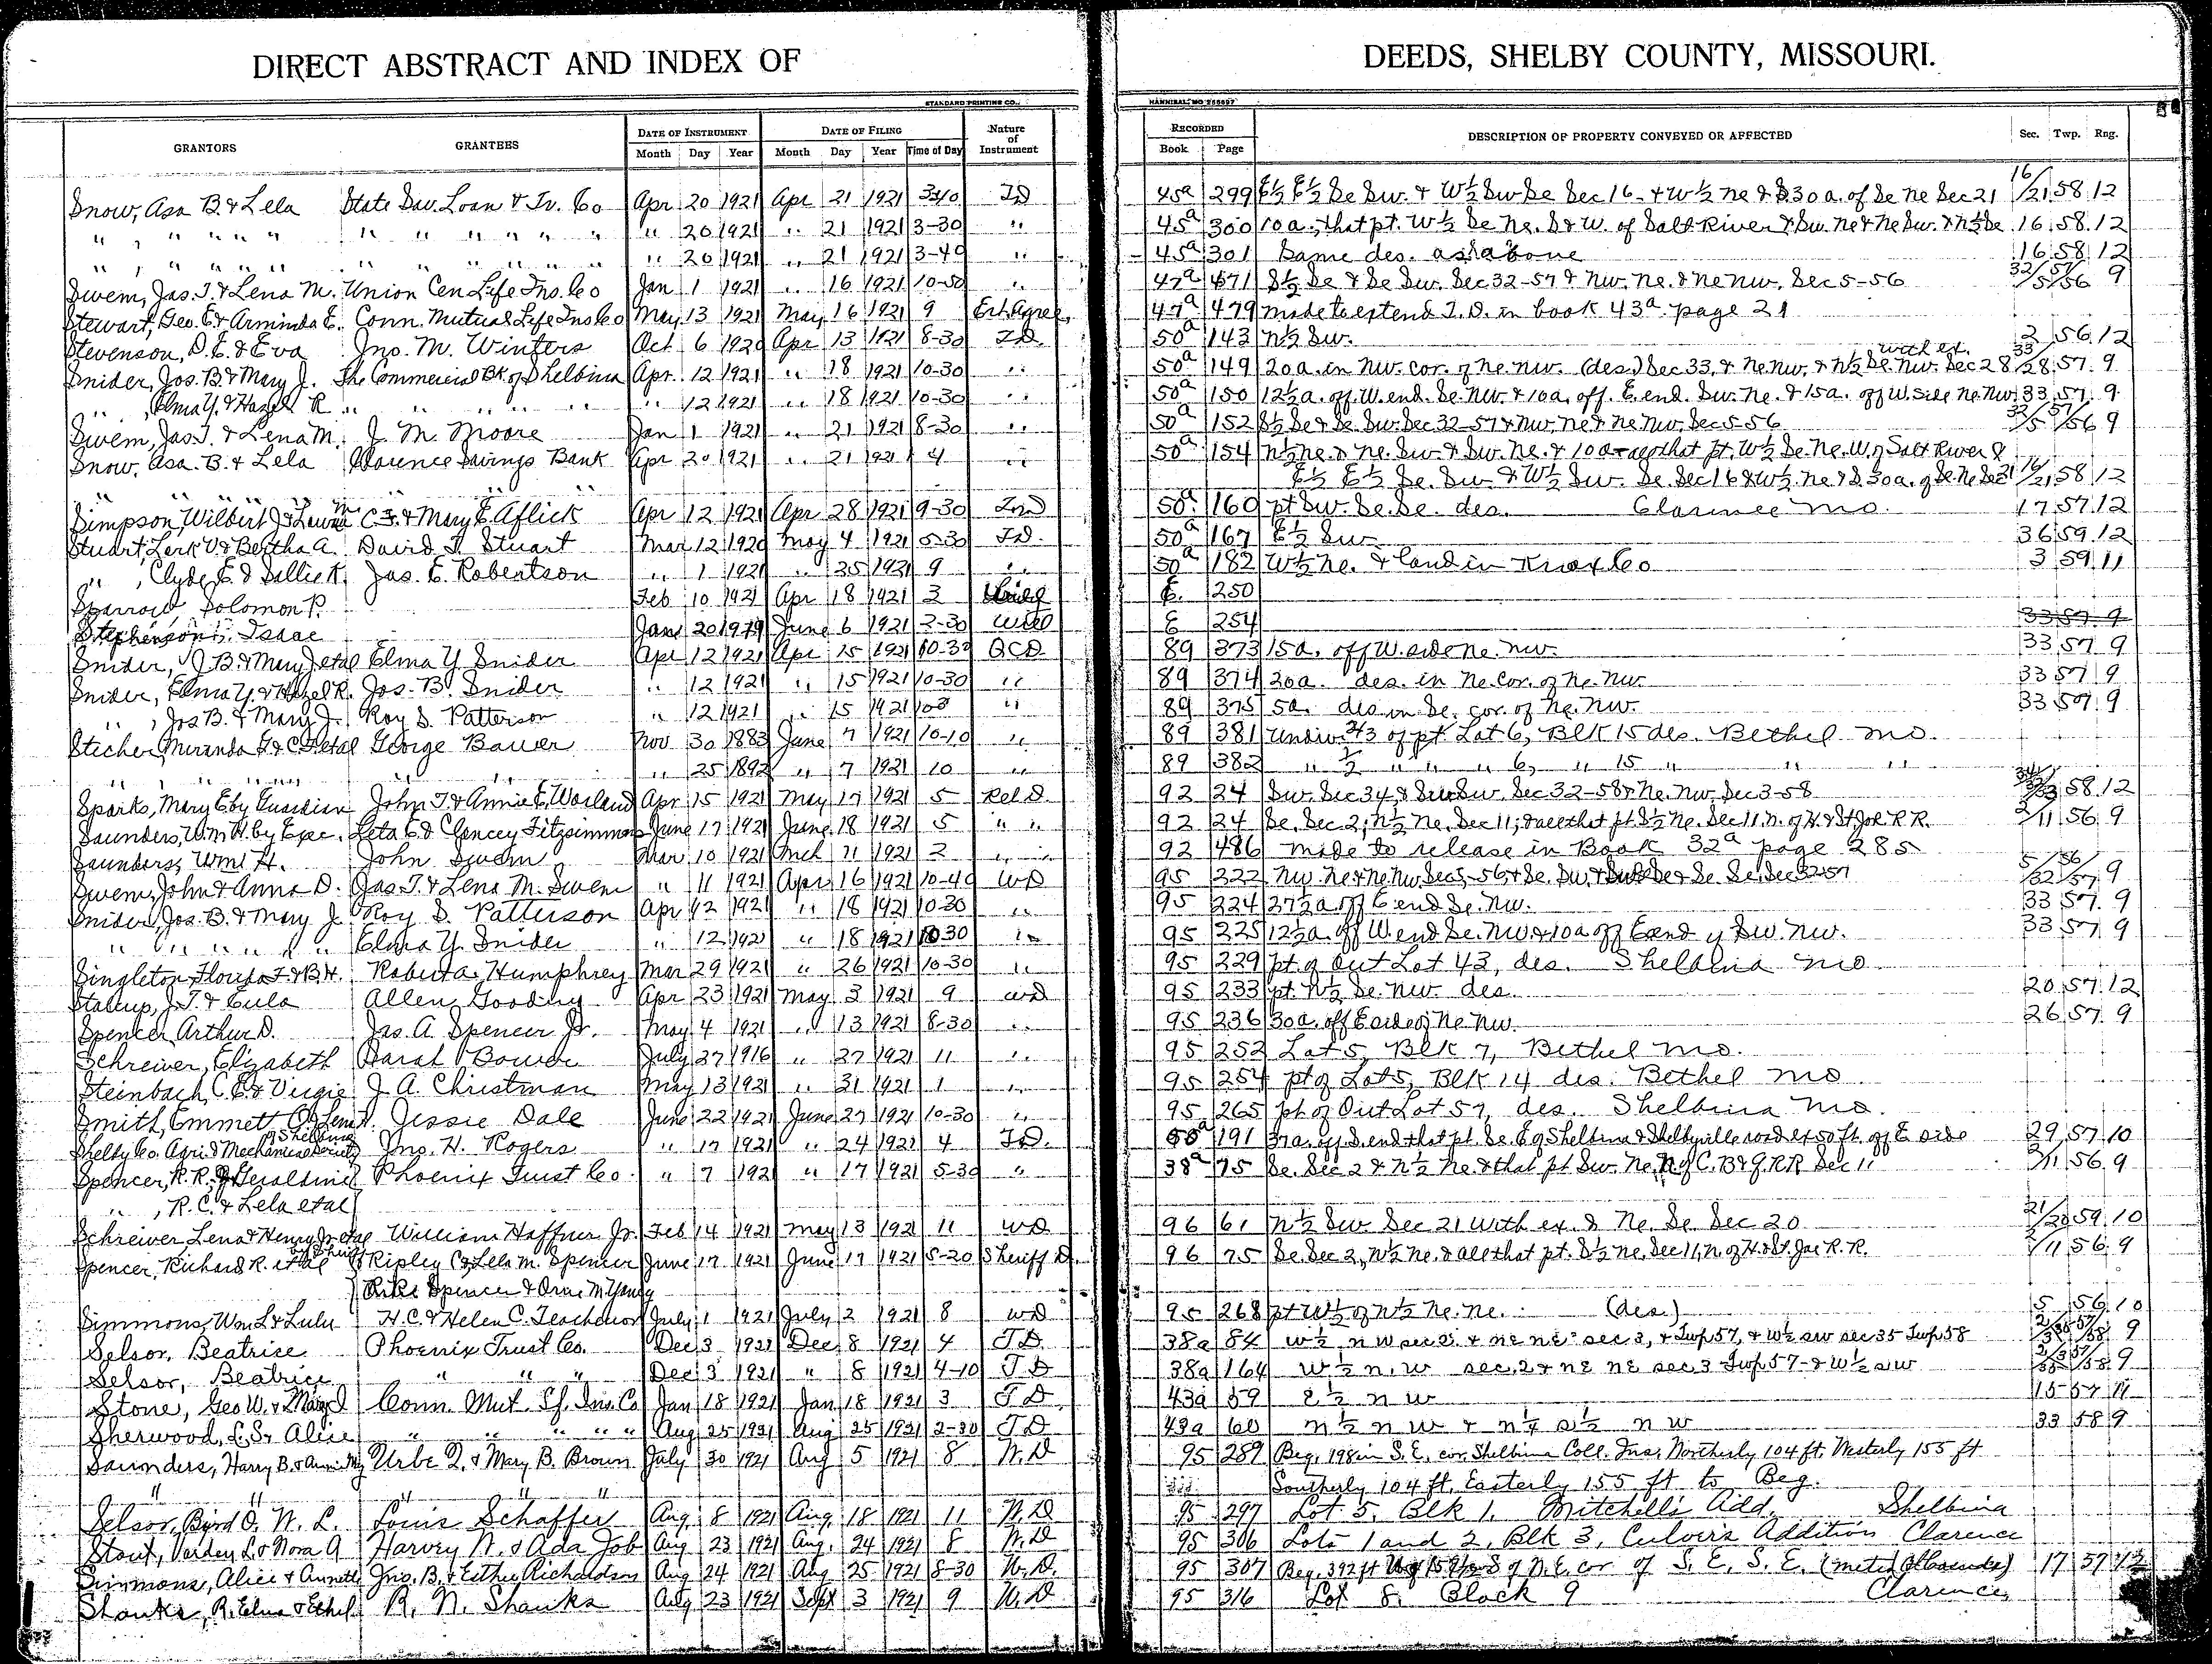 DIRECT ABSTRACT AND INDEX OF DEEDS, SHELBY COUNTY, MISSOURI.
STANDARD PRINTING CO., HANNIBAL, MO
GRANTORS GRANTEES DATE OF INSTRUMENT DATE OF FILING Nature of Instrument RECORDED DESCRIPTION OF PROPERTY CONVEYED OR AFFECTED Sec. Twp. Rng.
Month Day Year Month Day Year Time of Day Book Page
Snow, Asa B. & Lela State Sav. Loan & Tr. Co Apr 20 1921 Apr 21 1921 TD 45a 299 E½ E½ Se Sw. & W½ Sw Se Sec 16 & W½ Ne & S30a. of Se Ne Sec 21 16/21 58 12
" , " " " " " " " " " " " 20 1921 " 21 1921 3-30 " 45a 300 10a. that pt. W½ Se Ne. S & W. of Salt River & Sw. Ne & Ne Sw. & N½ Se 16 58 12
" , " " " " " " " " " " " 20 1921 " 21 1921 3-40 " 45a 301 Same des. as above 16 58 12
Swem, Jas. T. & Lena M. Union Cen Life Ins. Co Jan 1 1921 " 16 1921 10-50 " 47a 471 S½ Se & Se Sw. Sec 32-57 & Nw. Ne. & Ne Nw. Sec 5-56 32/5 57/56 9
Stewart, Geo. E. & Arminda E. Conn. Mutual Life Ins Co May 13 1921 May 16 1921 9 Ext Agree. 47a 479 made to extend T.D. in book 43a page 21
Stevenson, D.E. & Eva Jno. M. Winters Oct 6 1920 Apr 13 1921 8-30 T.D. 50a 143 N½ Sw. 2 56 12
Snider, Jos. B. & Mary J. The Commercial Bk of Shelbina Apr. 12 1921 " 18 1921 10-30 " 50a 149 20a. in Nw. cor. of Ne. Nw. (des.) Sec 33, & Ne. Nw. & N½ Se. Nw. Sec 28 with ex. 33/28 57 9
" , Elma Y. & Hazel R. " " " " " " 12 1921 " 18 1921 10-30 " 50a 150 12½a. off W. end. Se. Nw. & 10a. off. E. end. Sw. Ne. & 15a. off W. side Ne. Nw. 33 57 9
Swem, Jas. T. & Lena M. J. M. Moore Jan 1 1921 " 21 1921 8-30 " 50a 152 S½ Se & Se. Sw. Sec 32-57 & Nw. Ne & Ne Nw. Sec 5-56 32/5 57/56 9
Snow, Asa B. & Lela Clarence Savings Bank Apr 20 1921 " 21 1921 4 " 50a 154 N½ Ne. & Ne. Sw. & Sw. Ne. & 10a all that pt. W½ Se. Ne. W. of Salt River &
" " " " " " " " E½ E½ Se. Sw. & W½ Sw. Se. Sec 16 & W½ Ne & S30a. of Se. Ne Sec 21 16/21 58 12
Simpson, Wilbert J. & Laura M. C. F. & Mary E. Aflick Apr 12 1921 Apr 28 1921 9-30 50a 160 pt Sw. Se. Se. des. Clarence Mo. 17 57 12
Stuart, Lerk V. & Bertha A. David T. Stuart Mar 12 1920 May 4 1921 5-30 T.D. 50a 167 E½ Sw. 36 59 12
" , Clyde E. & Sallie K. Jas. E. Robertson " 1 1921 " 25 1921 9 " 50a 182 W½ Ne. & land in Knox Co 3 59 11
Sparrow, Solomon P. Feb 10 1921 Apr 18 1921 3 E. 250
Stephenson, Isaac Jan 20 1919 June 6 1921 2-30 Will E 254 33 57 9
Snider, J B. & Mary J. etal Elma Y. Snider Apr 12 1921 Apr 15 1921 10-30 Q.C.D. 89 373 15a. off W. side Ne. Nw. 33 57 9
Snider, Elma Y. & Hazel R. Jos. B. Snider " 12 1921 " 15 1921 10-30 " 89 374 20a. des. in Ne. cor. of Ne. Nw. 33 57 9
" , Jos B. & Mary J. Roy S. Patterson " 12 1921 " 15 1921 " 89 375 5a. des in Se. cor. of Ne. Nw. 33 57 9
Sticher, Miranda F. & C. F. etal George Bauer Nov 30 1883 June 7 1921 10-10 " 89 381 Undiv. 2/3 of pt. Lot 6, Blk 15 des. Bethel Mo.
" , " " " " " " " 25 1892 " 7 1921 10 " 89 382 " ½ " " " 6, " 15 " " "
Sparks, Mary E by Guardian John T. & Annie E. Worland Apr 15 1921 May 17 1921 5 Rel D. 92 24 Sw. Sec 34, & Sw. Sec 32-58, Ne. Nw. Sec 3-58 58 12
Saunders, Wm H. by Exec. Leta E. & Clancey Fitzsimmons June 17 1921 June 18 1921 5 " " 92 24 Se. Sec 2; N½ Ne. Sec 11; & all that pt S½ Ne. Sec 11, N. of H. & St Joe R.R. 2/11 56 9
Saunders, Wm H. John Swem Mar 10 1921 Mch 11 1921 2 " " 92 486 made to release in Book 32a page 285
Swem, John & Anna D. Jas. T. & Lena M. Swem " 11 1921 Apr 16 1921 10-40 WD 95 222 Nw. Ne & Ne Nw. Sec 5-56 & Se. Sw. & Se. Se. Sec 32-57 5/32 56/57 9
Snider, Jos. B. & Mary J. Roy S. Patterson Apr 12 1921 " 18 1921 10-30 " 95 224 27½a off E end Se. Nw. 33 57 9
" " " " " " Elma Y. Snider " 12 1921 " 18 1921 10 30 " 95 225 12½a. off W end Se. Nw & 10a off E end of Sw. Nw. 33 57 9
Singleton, Florida F. & B. H. Roberta Humphrey Mar 29 1921 " 26 1921 10-30 " 95 229 pt. of Out Lot 43, des. Shelbina Mo
Stalcup, J. T. & Eula Allen Gooding Apr 23 1921 May 3 1921 9 WD 95 233 pt. N½ Se. Nw. des. 20 57 12
Spencer, Arthur D. Jas. A. Spencer Jr. May 4 1921 " 13 1921 8-30 " 95 236 30a. off E side of Ne. Nw. 26 57 9
Schreiver, Elizabeth Sarah Bower July 27 1916 " 27 1921 11 " 95 252 Lot 5, Blk 7, Bethel Mo.
Steinbach, C. E. & Virgie J. A. Christman May 13 1921 " 31 1921 1 " 95 254 pt of Lot 5, Blk 14 des. Bethel Mo
Smith, Emmett O. & Lena Jessie Dale June 22 1921 June 27 1921 10-30 " 95 265 pt of Out Lot 57, des. Shelbina Mo.
Shelby Co. Agri. & Mechanical Society of Shelbina Jno. H. Rogers " 17 1921 " 24 1921 4 T.D. 50a 191 37a. off S. end that pt. Se. E of Shelbina & Shelbyville road ex 50 ft. off E side 29 57 10
Spencer, R. R. & Geraldine Phoenix Trust Co. " 7 1921 " 17 1921 5-30 " 38a 75 Se. Sec 2 & N½ Ne. & that pt Sw. Ne. N of C. B & Q. R.R. Sec 11 2/11 56 9
" , R. C. & Lela etal
Schreiver Lena & Henry Jr. etal William Haffner Jr. Feb 14 1921 May 13 1921 11 WD 96 61 N½ Sw Sec 21 with ex. & Ne. Se. Sec 20 21/20 59 10
Spencer, Richard R. etal by Sheriff Ripley C. & Lela M. Spencer June 17 1921 June 17 1921 5-20 Sheriff D. 96 75 Se. Sec 2, N½ Ne. & all that pt. S½ Ne. Sec 11, N. of H. & St. Joe R.R. 2/11 56 9
Spencer & M Young
Simmons, Wm L. & Lulu H. C. & Helen C. Teachenor July 1 1921 July 2 1921 8 WD 95 268 pt W½ of N½ Ne. Ne. (des.) 5 56 10
Selsor, Beatrice Phoenix Trust Co. Dec 3 1921 Dec 8 1921 4 T.D. 38a 84 W½ NW sec 2 & NE NE sec 3, Twp 57, & W½ SW sec 35 Twp 58 9
Selsor, Beatrice " " " Dec 3 1921 " 8 1921 4-10 T D 38a 164 W½ N.W sec. 2 & NE NE sec 3 Twp 57 & W½ SW 9
Stone, Geo W. & Conn. Mut. Lf. Ins. Co Jan 18 1921 Jan 18 1921 3 T D 43a 59 E½ NW 15 57 11
Sherwood, L. S. & Alice " " " " " Aug 25 1921 Aug 25 1921 2-30 T D 43a 60 N½ NW & N¼ S½ NW 33 58 9
Saunders, Harry B. & Urbe Q. & Mary B. Brown July 30 1921 Aug 5 1921 8 W.D 95 289 Beg. 198 in S. E. cor. Shelbina Coll. Ins. Northerly 104 ft. Westerly 155 ft
" " " " Southerly 104 ft. Easterly 155 ft to Beg.
Selsor, Byrd O. W. L. Louis Schaffer Aug. 8 1921 Aug. 18 1921 11 W.D 95 297 Lot 5, Blk 1, Mitchell's Add. Shelbina
Stout, Varden L. & Nora A Harvey N. & Ada Job Aug 23 1921 Aug. 24 1921 8 W.D 95 306 Lots 1 and 2, Blk 3, Culver's Addition Clarence
Simmons, Alice & Annette Jno. B. & Esther Richardson Aug 24 1921 Aug 25 1921 8-30 W.D. 95 307 Beg. 392 ft of N. E. cor of S. E. S. E. 17 57 12
Shanks, R. Elma & Ethel R. N. Shanks Aug 23 1921 Sept 3 1921 9 W.D 95 316 Lot 8 Block 9 Clarence,